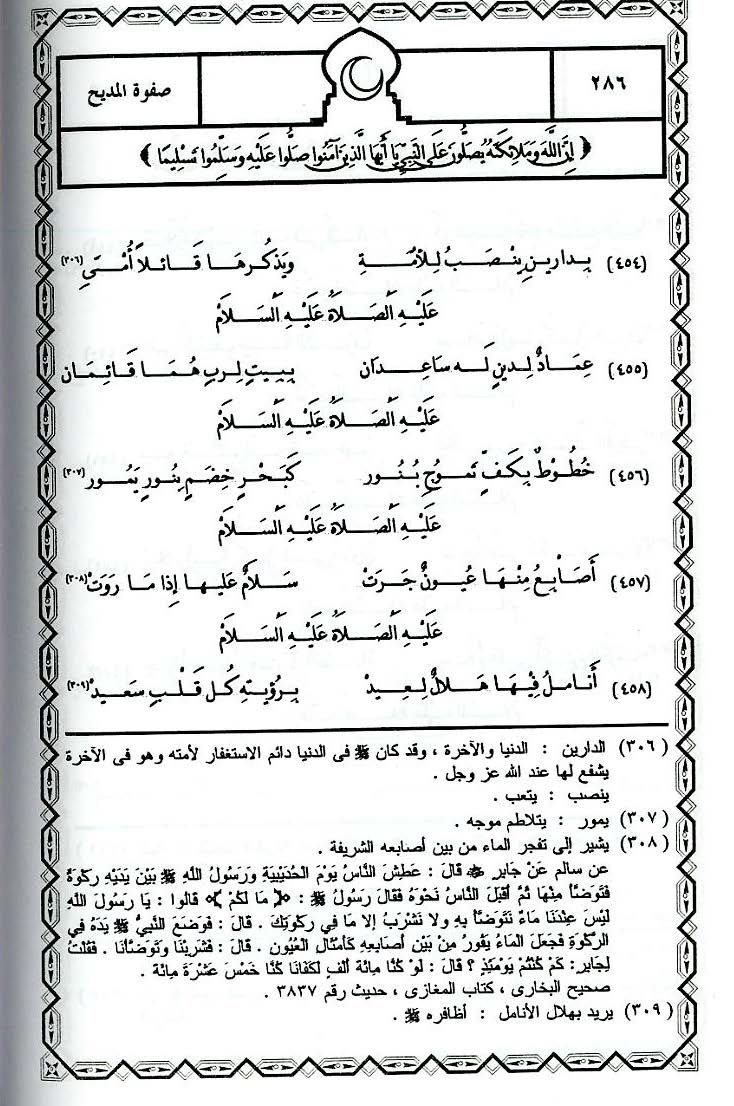 ٢٨٦
صفوة المديح
﴿ إِنَّ اللَّهَ وَمَلَائِكَتَهُ يُصَلُّونَ عَلَى النَّبِيِّ يَا أَيُّهَا الَّذِينَ آمَنُوا صَلُّوا عَلَيْهِ وَسَلِّمُوا تَسْلِيمًا ﴾
(٤٥٤) بِدارينِ يَنْصَبُ لِلأُمَّةِ وَيَذكُرهَا قَائلاً أُمَّتِي (٣٠٦)
عَلَيْهِ الصَّلاَةُ عَلَيْهِ السَّلاَمْ
(٤٥٥) عِمَادٌ لِدينٍ لَه سَاعِدَان بِبيتٍ لِربٍ هُمَا قَائِمَان
عَلَيْهِ الصَّلاَةُ عَلَيْهِ السَّلاَمْ
(٤٥٦) خُطُوطٌ بِكَفٍّ تَموجُ بِنُور كَبَحْرٍ خِضَمٍ بِنورٍ يَمُور (٣٠٧)
عَلَيْهِ الصَّلاَةُ عَلَيْهِ السَّلاَمْ
(٤٥٧) أَصَابِعُ مِنْهَا عُيونٌ جَرَتْ سَلاَمٌ عَليها إِذا مَا رَوَتْ (٣٠٨)
عَلَيْهِ الصَّلاَةُ عَلَيْهِ السَّلاَمْ
(٤٥٨) أَنَاملُ فِيهَا هَلالٌ لِعِيدْ بِرُؤيتِه كُل قَلْبٍ سَعِيدْ (٣٠٩)
(٣٠٦) الدارين : الدنيا والآخرة ، وقد كان ﷺ فى الدنيا دائم الاستغفار لأمته وهو فى الآخرة
يشفع لها عند الله عز وجل .
ينصب : يتعب .
(٣٠٧) يمور : يتلاطم موجه .
(٣٠٨) يشير إلى تفجر الماء من بين أصابعه الشريفة .
عن سالم عَنْ جَابِرٍ ﷺ قَالَ : عَطِشَ النَّاسُ يَوْمَ الْحُدَيْبِيَةِ وَرَسُولُ اللَّهِ ﷺ بَيْنَ يَدَيْهِ رِكْوَةٌ
فَتَوَضَّأَ مِنْهَا ثُمَّ أَقْبَلَ النَّاسُ نَحْوَهُ فَقَالَ رَسُولُ ﷺ : ﴿ مَا لَكُمْ ﴾ قالوا : يَا رَسُولَ اللَّهِ
لَيْسَ عِنْدَنَا مَاءٌ نَتَوَضَّأُ بِهِ وَلا نَشْرَبُ إلا مَا فِي رِكْوَتِكَ . قَالَ : فَوَضَعَ النَّبِيُّ ﷺ يَدَهُ فِي
الرِّكْوَةِ فَجَعَلَ الْمَاءُ يَفُورُ مِنْ بَيْنِ أَصَابِعِهِ كَأَمْثَالِ الْعُيُونِ . قَالَ : فَشَرِبْنَا وَتَوَضَّأْنَا . فَقُلْتُ
لِجَابِرٍ: كَمْ كُنْتُمْ يَوْمَئِذٍ ؟ قَالَ : لَوْ كُنَّا مِائَةَ أَلْفٍ لَكَفَانَا كُنَّا خَمْسَ عَشْرَةَ مِائَةً .
صحيح البخارى ، كتاب المغازى ، حديث رقم ٣٨٣٧ .
(٣٠٩) يريد بهلال الأنامل : أظافره ﷺ .